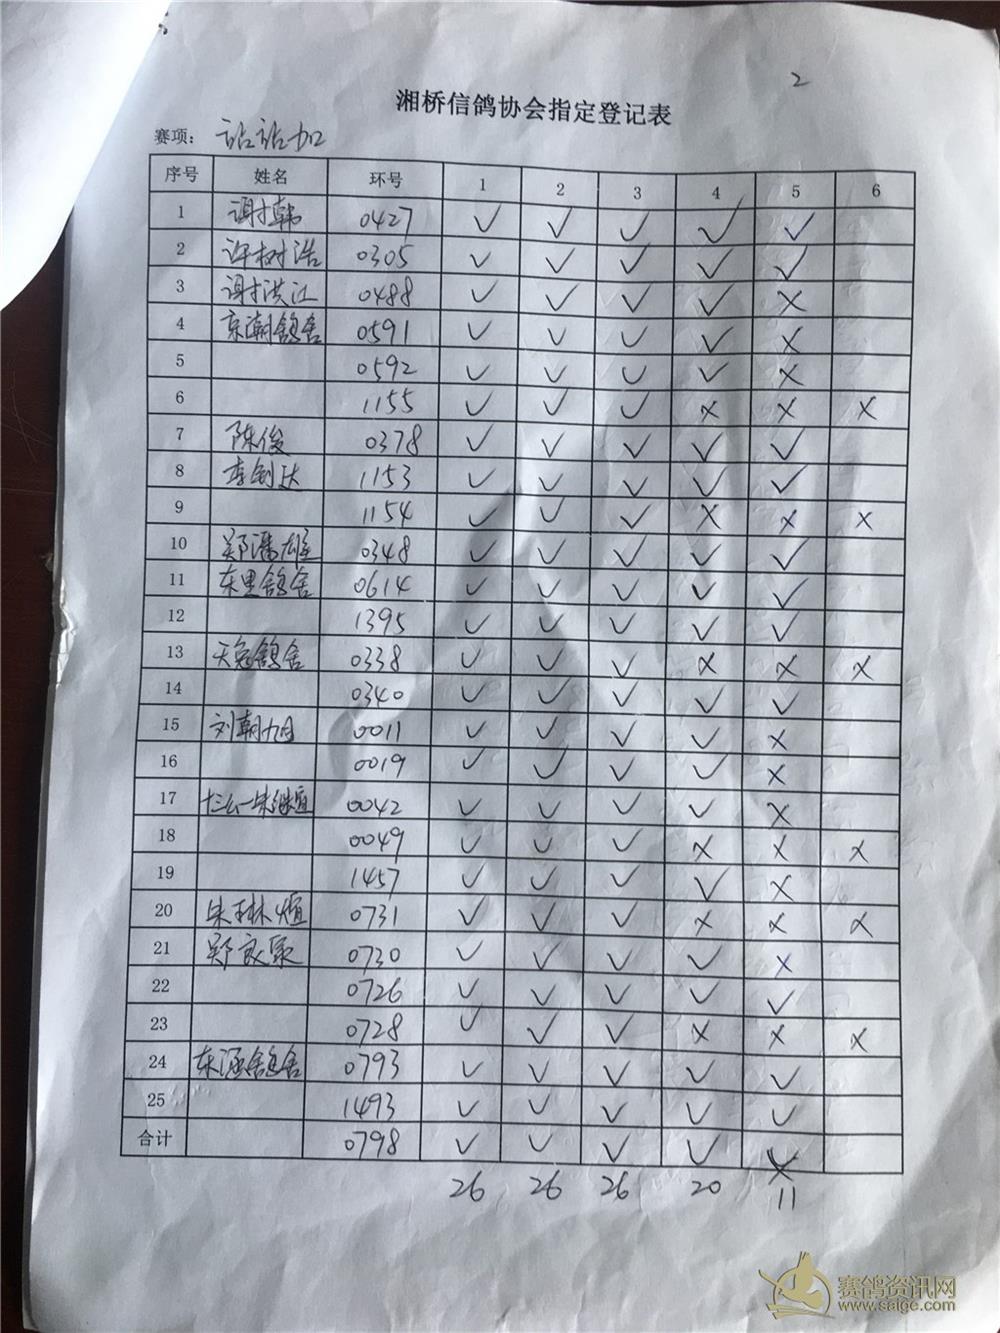 2
湘桥信鸽协会指定登记表
赛项： 站站加
序号 姓名 环号 1 2 3 4 5 6
1 谢才韩 0427 ✓ ✓ ✓ ✓ ✓
2 许树浩 0305 ✓ ✓ ✓ ✓ ✓
3 谢才洪江 0488 ✓ ✓ ✓ ✓ ×
4 京潮鸽舍 0591 ✓ ✓ ✓ ✓ ×
5 0592 ✓ ✓ ✓ ✓ ×
6 1155 ✓ ✓ ✓ × × ×
7 陈俊 0378 ✓ ✓ ✓ ✓ ✓
8 李剑达 1153 ✓ ✓ ✓ ✓ ✓
9 1154 ✓ ✓ ✓ × × ×
10 郑潘雄 0348 ✓ ✓ ✓ ✓ ✓
11 东里鸽舍 0614 ✓ ✓ ✓ ✓ ✓
12 1395 ✓ ✓ ✓ ✓ ✓
13 天兔鸽舍 0338 ✓ ✓ ✓ × × ×
14 0340 ✓ ✓ ✓ ✓ ✓
15 刘朝旭 0011 ✓ ✓ ✓ ✓ ×
16 0019 ✓ ✓ ✓ ✓ ×
17 0042 ✓ ✓ ✓ ✓ ×
18 0049 ✓ ✓ ✓ × × ×
19 1457 ✓ ✓ ✓ ✓ ×
20 0731 ✓ ✓ ✓ × × ×
21 郑 0730 ✓ ✓ ✓ ✓ ×
22 0726 ✓ ✓ ✓ ✓ ✓
23 0728 ✓ ✓ ✓ × × ×
24 东涵鸽舍 0793 ✓ ✓ ✓ ✓ ✓
25 1493 ✓ ✓ ✓ ✓ ✓
合计 0798 ✓ ✓ ✓ ✓
26 26 26 20 11
赛鸽资讯网
www.saige.com